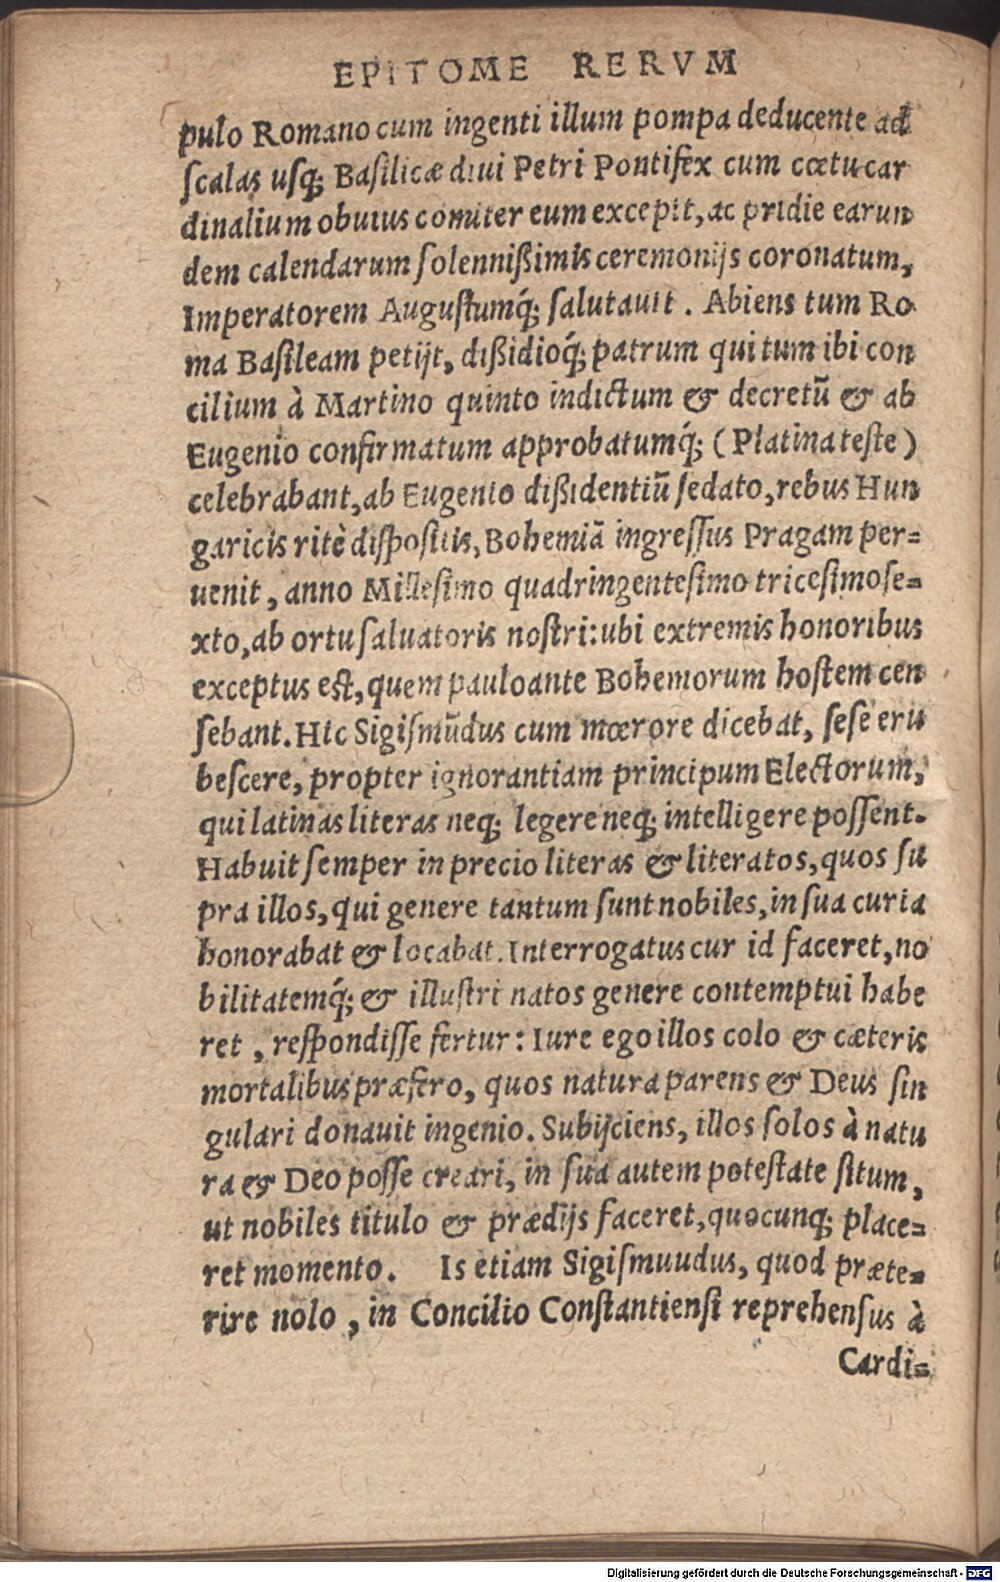 EPITOME RERVM
pulo Romano cum ingenti illum pompa deducente ad
scalas usq; Basilicæ diui Petri Pontifex cum cœtu car
dinalium obuius comiter eum excepit, ac pridie earun
dem calendarum solennißimis ceremonijs coronatum,
Imperatorem Augustumq́; salutauit. Abiens tum Ro
ma Basileam petijt, dißidioq́; patrum qui tum ibi con
cilium à Martino quinto indictum & decretũ & ab
Eugenio confirmatum approbatumq́; (Platina teste)
celebrabant, ab Eugenio dißidentiũ sedato, rebus Hun
garicis ritè dispositis, Bohemiã ingressus Pragam per=
uenit, anno Millesimo quadringentesimo tricesimo se=
xto, ab ortu saluatoris nostri: ubi extremis honoribus
exceptus est, quem pauloante Bohemorum hostem cen
sebant. Hic Sigismũdus cum mœrore dicebat, sese eru
bescere, propter ignorantiam principum Electorum,
qui latinas literas neq; legere neq; intelligere possent.
Habuit semper in precio literas & literatos, quos su
pra illos, qui genere tantum sunt nobiles, in sua curia
honorabat & locabat. Interrogatus cur id faceret, no
bilitatemq́; & illustri natos genere contemptui habe
ret, respondisse fertur: Iure ego illos colo & cæteris
mortalibus præfero, quos natura parens & Deus sin
gulari donauit ingenio. Subijciens, illos solos à natu
ra & Deo posse creari, in sua autem potestate situm,
ut nobiles titulo & prædijs faceret, quocunq; place=
ret momento. Is etiam Sigismuudus, quod præte=
rire nolo, in Concilio Constantiensi reprehensus à
Cardi=
Digitalisierung gefördert durch die Deutsche Forschungsgemeinschaft - DFG